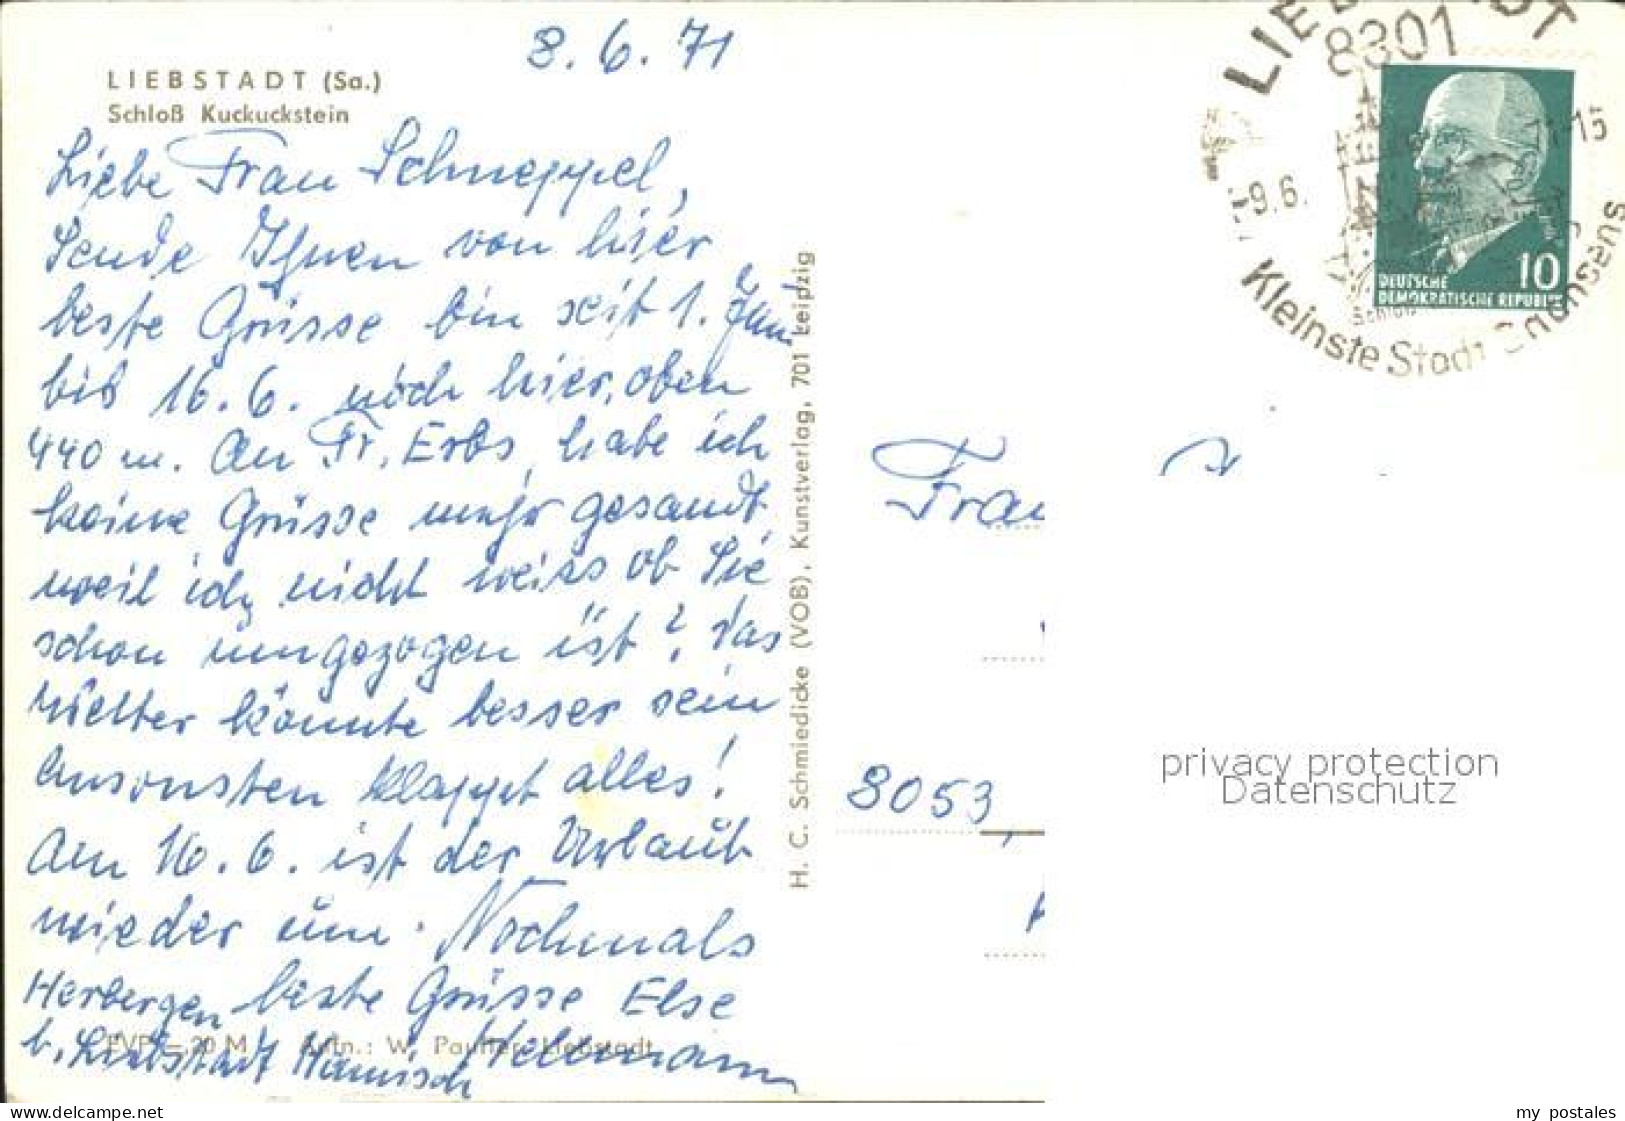 8.6.71
LIEBSTADT (Sa.)
Schloß Kuckuckstein
Liebe Frau Schneppel,
Sende Ihnen von hier
beste Grüsse bin seit 1. Juni
bis 16.6. noch hier, oben
440 m. An Fr. Erbs, habe ich
keine Grüsse mehr gesandt,
weil ich nicht weiss ob Sie
schon umgezogen ist? Das
Wetter könnte besser sein
Ansonsten klappt alles!
Am 16.6. ist der Urlaub
wieder um. Nochmals
Herbergen beste Grüsse Else
b. Liebstadt
EVP –,20 M Aufn.: W. Liebstadt
H. C. Schmiedicke (VOB), Kunstverlag, 701 Leipzig
LIEBSTADT
8301
9.6.
-15
Kleinste Stadt Sachsens
10
DEUTSCHE
DEMOKRATISCHE REPUBLIK
Frau
8053,
privacy protection
Datenschutz
my postales